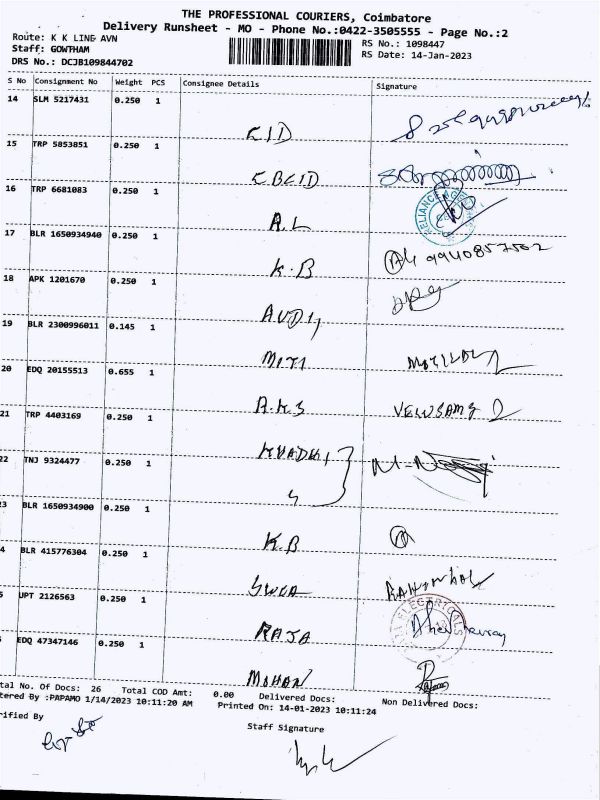 THE PROFESSIONAL COURIERS, Coimbatore
Delivery Runsheet - MO - Phone No.:0422-3505555 - Page No.:2
Route: K K LINE AVN
Staff: GOWTHAM
DRS No.: DCJB109844702
RS No.: 1098447
RS Date: 14-Jan-2023
S No Consignment No Weight PCS Consignee Details Signature
14 SLM 5217431 0.250 1 CID
15 TRP 5853851 0.250 1 CBCID
16 TRP 6681083 0.250 1 A.L RELIANCE
17 BLR 1650934940 0.250 1 K.B 9940857502
18 APK 1201670 0.250 1 AUDI,
19 BLR 2300996011 0.145 1 MITI
20 EDQ 20155513 0.655 1 A.K.S VELUSAMY
21 TRP 4403169 0.250 1
22 TNJ 9324477 0.250 1 S
23 BLR 1650934900 0.250 1 K.B
4 BLR 415776304 0.250 1
5 UPT 2126563 0.250 1 RAJA ELECTRICALS
EDQ 47347146 0.250 1 MOHAN
tal No. Of Docs: 26 Total COD Amt: 0.00 Delivered Docs: Non Delivered Docs:
tered By :PAPAMO 1/14/2023 10:11:20 AM Printed On: 14-01-2023 10:11:24
rified By Staff Signature